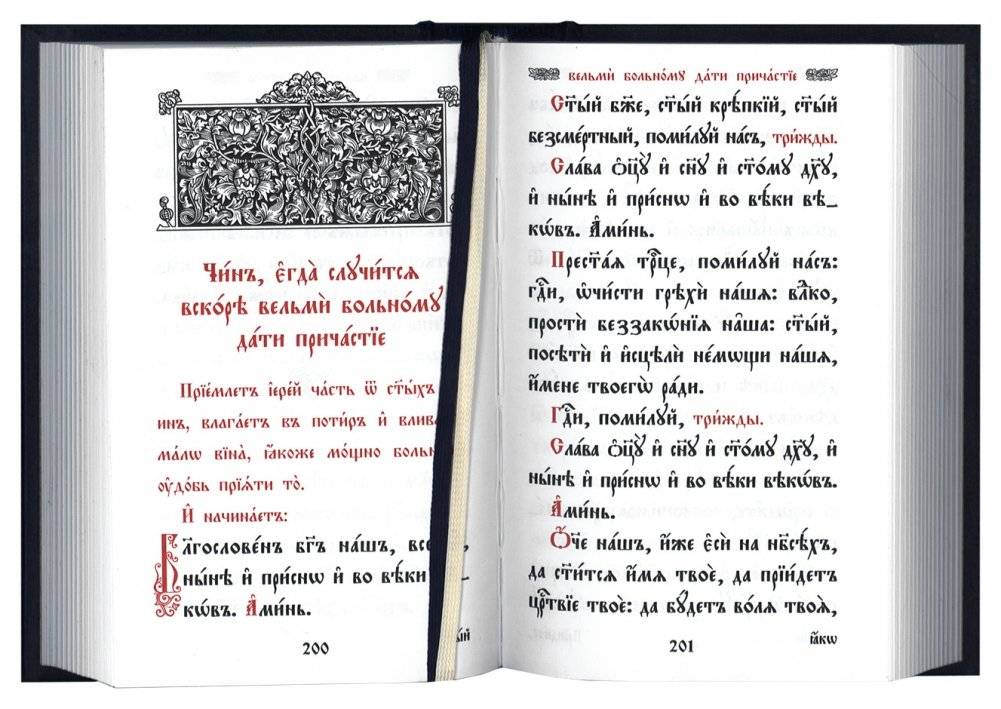 Чи́нъ, є҆гда̀ случи́тсѧ
вско́рѣ вельмѝ больно́му
да́ти прича́стїе
Прїе́млетъ і҆ере́й ча́сть ѿ ст҃ы́хъ
инъ, влага́етъ въ поти́ръ и҆
ма́лѡ вїна̀, ꙗ҆́коже мо́щно
ᲂу҆до́бь прїѧ́ти то̀.
И҆ начина́етъ:
Бл҃гослове́нъ бг҃ъ на́шъ,
ны́нѣ и҆ при́снѡ и҆ во вѣ́ки
кѡ́въ. А҆ми́нь.
200
вельмѝ больно́му да́ти прича́стїе
Ст҃ы́й бж҃е, ст҃ы́й крѣ́пкїй, ст҃ы́й
безсме́ртный, поми́луй на́съ, три́жды.
Сла́ва ѻ҆ц҃ꙋ̀ и҆ сн҃ꙋ и҆ ст҃о́мꙋ дх҃ꙋ,
и҆ ны́нѣ и҆ при́снѡ и҆ во вѣ́ки вѣ_
кѡ́въ. А҆ми́нь.
Прест҃а́ѧ трⷪ҇це, поми́луй на́съ:
гдⷭ҇и, ѡ҆чи́сти грѣхѝ на́шѧ: влⷣко,
простѝ беззакѡ́нїѧ на̑ша: ст҃ы́й,
посѣтѝ и҆ и҆сцѣлѝ не́мѡщи на́шѧ,
и҆́мене твоегѡ̀ ра́ди.
Гдⷭ҇и, поми́луй, три́жды.
Сла́ва ѻ҆ц҃ꙋ̀ и҆ сн҃ꙋ и҆ ст҃о́мꙋ дх҃ꙋ, и҆
ны́нѣ и҆ при́снѡ и҆ во вѣ́ки вѣкѡ́въ.
А҆ми́нь.
Ѻ҆́ч҃е на́шъ, и҆́же є҆сѝ на нб҃сѣ́хъ,
да ст҃и́тсѧ и҆́мѧ твоѐ, да прїи́детъ
црⷭ҇твїе твоѐ: да бу́детъ во́лѧ твоѧ̀,
201
ꙗ҆́кѡ